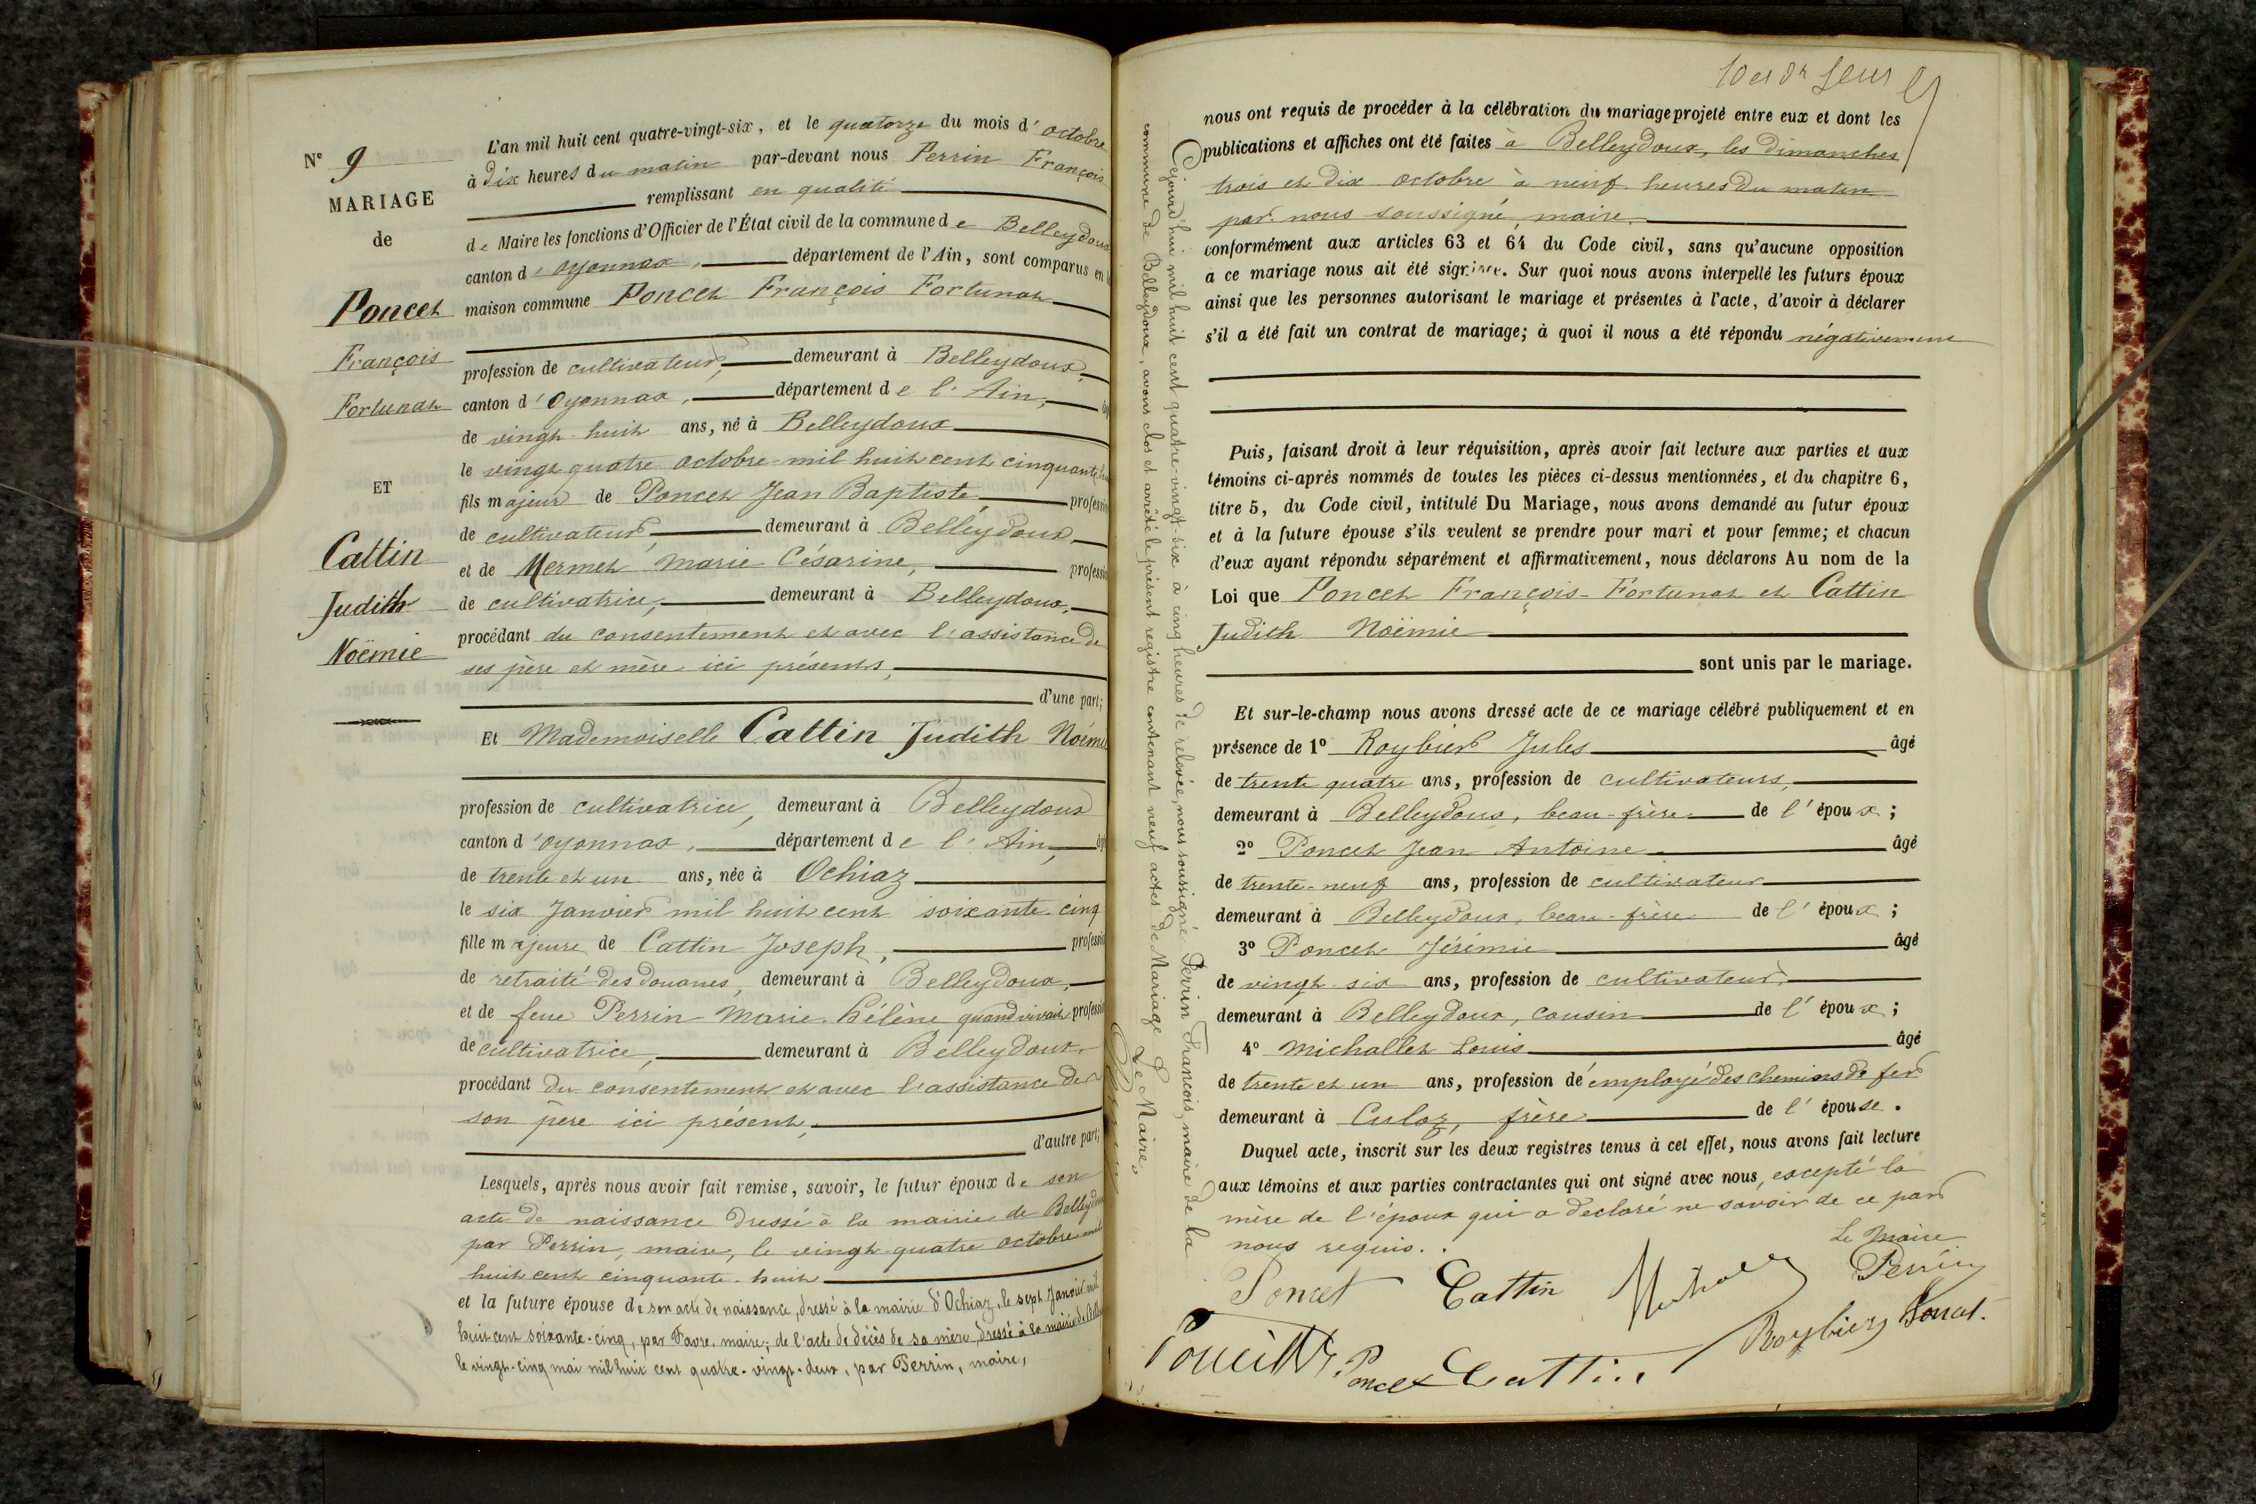 N° 9
MARIAGE
de
Poncet
François
Fortunat
ET
Cattin
Judith
Noëmie
L'an mil huit cent quatre-vingt-six, et le quatorze du mois d'octobre
à dix heures du matin par-devant nous Perrin François
remplissant en qualité
de Maire les fonctions d'Officier de l'État civil de la commune de Belleydoux
canton d'Oyonnax, département de l'Ain, sont comparus en la
maison commune Poncet François Fortunat
profession de cultivateur, demeurant à Belleydoux,
canton d'Oyonnax, département de l'Ain,
de vingt-huit ans, né à Belleydoux
le vingt quatre octobre mil huit cent cinquante
fils majeur de Poncet Jean Baptiste, profession
de cultivateur, demeurant à Belleydoux,
et de Mermet Marie Césarine, profession
de cultivatrice, demeurant à Belleydoux,
procédant du consentement et avec l'assistance de
ses père et mère ici présents,
d'une part;
Et Mademoiselle Cattin Judith Noémie
profession de cultivatrice, demeurant à Belleydoux
canton d'Oyonnax, département de l'Ain,
de trente et un ans, née à Ochiaz
le six Janvier mil huit cent soixante cinq
fille majeure de Cattin Joseph, profession
de retraité des douanes, demeurant à Belleydoux,
et de feue Perrin Marie Hélène quand vivait profession
de cultivatrice, demeurant à Belleydoux
procédant du consentement et avec l'assistance de
son père ici présent,
d'autre part;
Lesquels, après nous avoir fait remise, savoir, le futur époux de son
acte de naissance dressé à la mairie de Belleydoux
par Perrin, maire, le vingt-quatre octobre mil
huit cent cinquante-huit
et la future épouse de son acte de naissance, dressé à la mairie d'Ochiaz, le sept Janvier mil
huit cent soixante-cinq, par Favre, maire; de l'acte de décès de sa mère, dressé à la mairie de
le vingt-cinq mai mil huit cent quatre-vingt-deux, par Perrin, maire,
Cejourd'hui mil huit cent quatre-vingt-six à cinq heures de relevée, nous soussigné Perrin François, maire de la
commune de Belleydoux, avons clos et arrêté le présent registre contenant neuf actes de Mariage Le Maire,
Perrin
nous ont requis de procéder à la célébration du mariage projeté entre eux et dont les
publications et affiches ont été faites à Belleydoux, les dimanches
trois et dix octobre à neuf heures du matin
par nous soussigné, maire.
conformément aux articles 63 et 64 du Code civil, sans qu'aucune opposition
a ce mariage nous ait été signifiée. Sur quoi nous avons interpellé les futurs époux
ainsi que les personnes autorisant le mariage et présentes à l'acte, d'avoir à déclarer
s'il a été fait un contrat de mariage; à quoi il nous a été répondu négativement
Puis, faisant droit à leur réquisition, après avoir fait lecture aux parties et aux
témoins ci-après nommés de toutes les pièces ci-dessus mentionnées, et du chapitre 6,
titre 5, du Code civil, intitulé Du Mariage, nous avons demandé au futur époux
et à la future épouse s'ils veulent se prendre pour mari et pour femme; et chacun
d'eux ayant répondu séparément et affirmativement, nous déclarons Au nom de la
Loi que Poncet François-Fortunat et Cattin
Judith Noëmie
sont unis par le mariage.
Et sur-le-champ nous avons dressé acte de ce mariage célébré publiquement et en
présence de 1° Roybier Jules âgé
de trente quatre ans, profession de cultivateurs,
demeurant à Belleydoux, beau-frère de l'époux;
2° Poncet Jean Antoine âgé
de trente-neuf ans, profession de cultivateur
demeurant à Belleydoux, beau-frère de l'époux;
3° Poncet Jérémie âgé
de vingt six ans, profession de cultivateur,
demeurant à Belleydoux, cousin de l'époux;
4° Michallet Louis âgé
de trente et un ans, profession d'employé des chemins de fer
demeurant à Culoz, frère de l'épouse.
Duquel acte, inscrit sur les deux registres tenus à cet effet, nous avons fait lecture
aux témoins et aux parties contractantes qui ont signé avec nous, excepté la
mère de l'époux qui a declaré ne savoir de ce par
nous requis.
Le Maire
Poncet Cattin Perrin
Roybier Poncet
Poncet Cattin